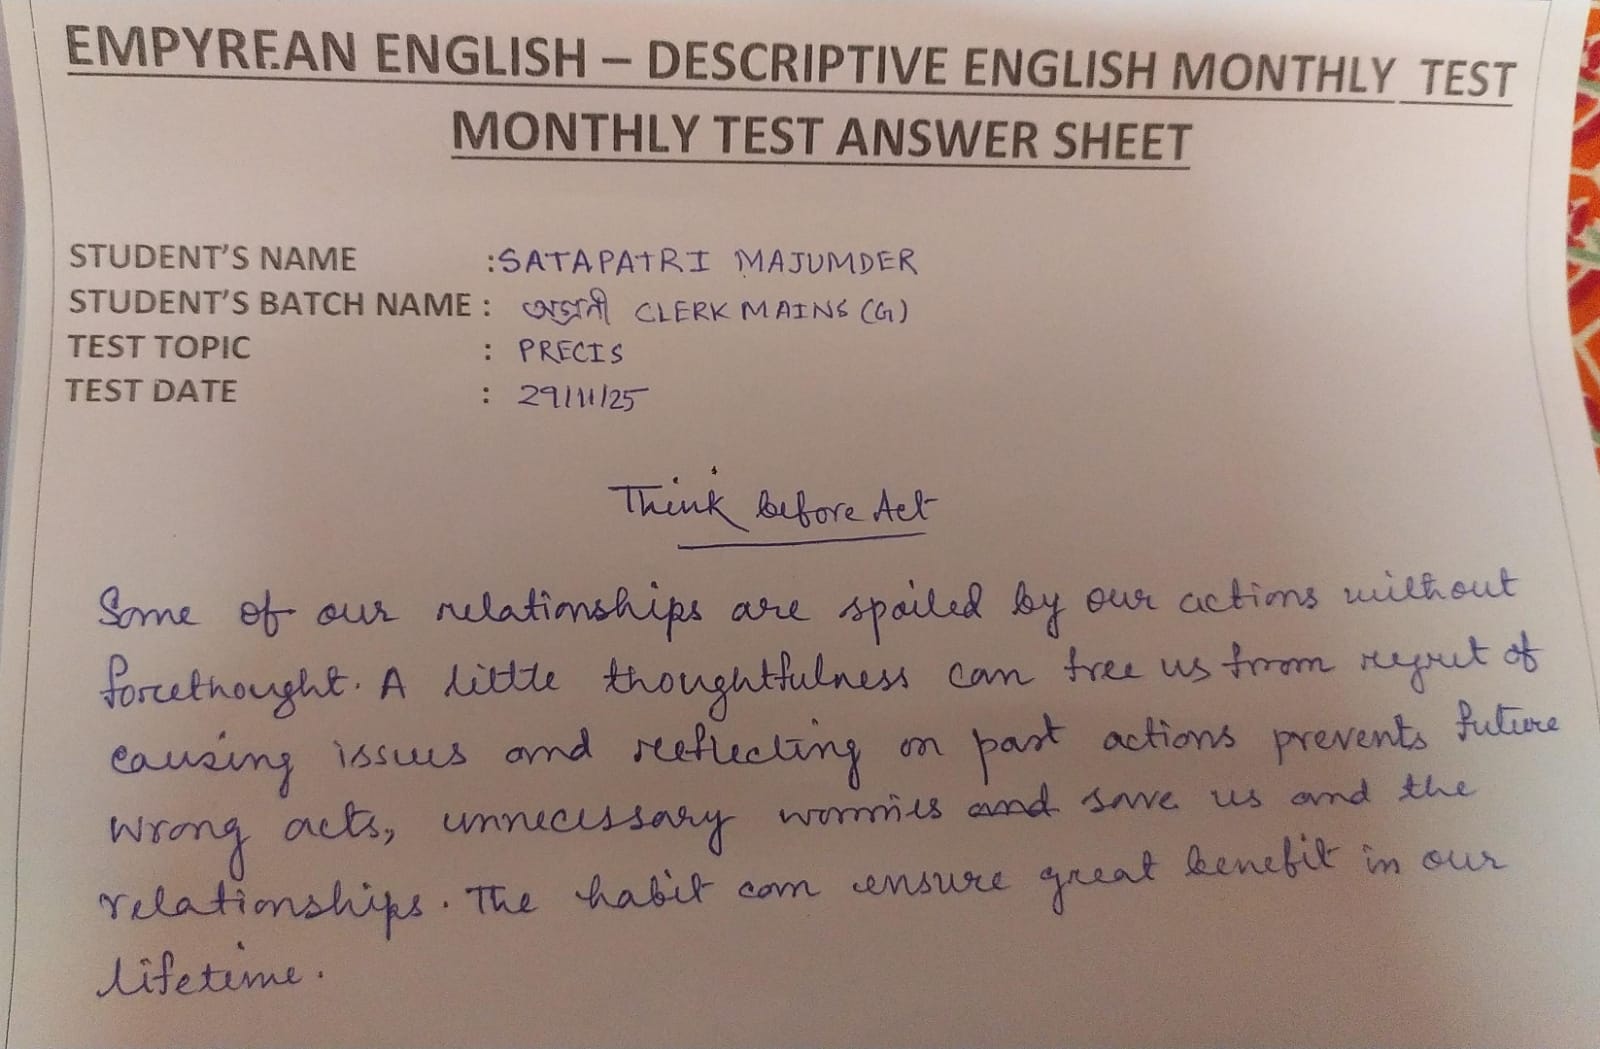 EMPYREAN ENGLISH – DESCRIPTIVE ENGLISH MONTHLY TEST
MONTHLY TEST ANSWER SHEET
STUDENT'S NAME :SATAPATRI MAJUMDER
STUDENT'S BATCH NAME : অগ্রণী CLERK MAINS (G)
TEST TOPIC : PRECIS
TEST DATE : 29/11/25
Think before Act
Some of our relationships are spoiled by our actions without
forethought. A little thoughtfulness can free us from regret of
causing issues and reflecting on past actions prevents future
wrong acts, unnecessary worries and save us and the
relationships. The habit can ensure great benefit in our
lifetime.